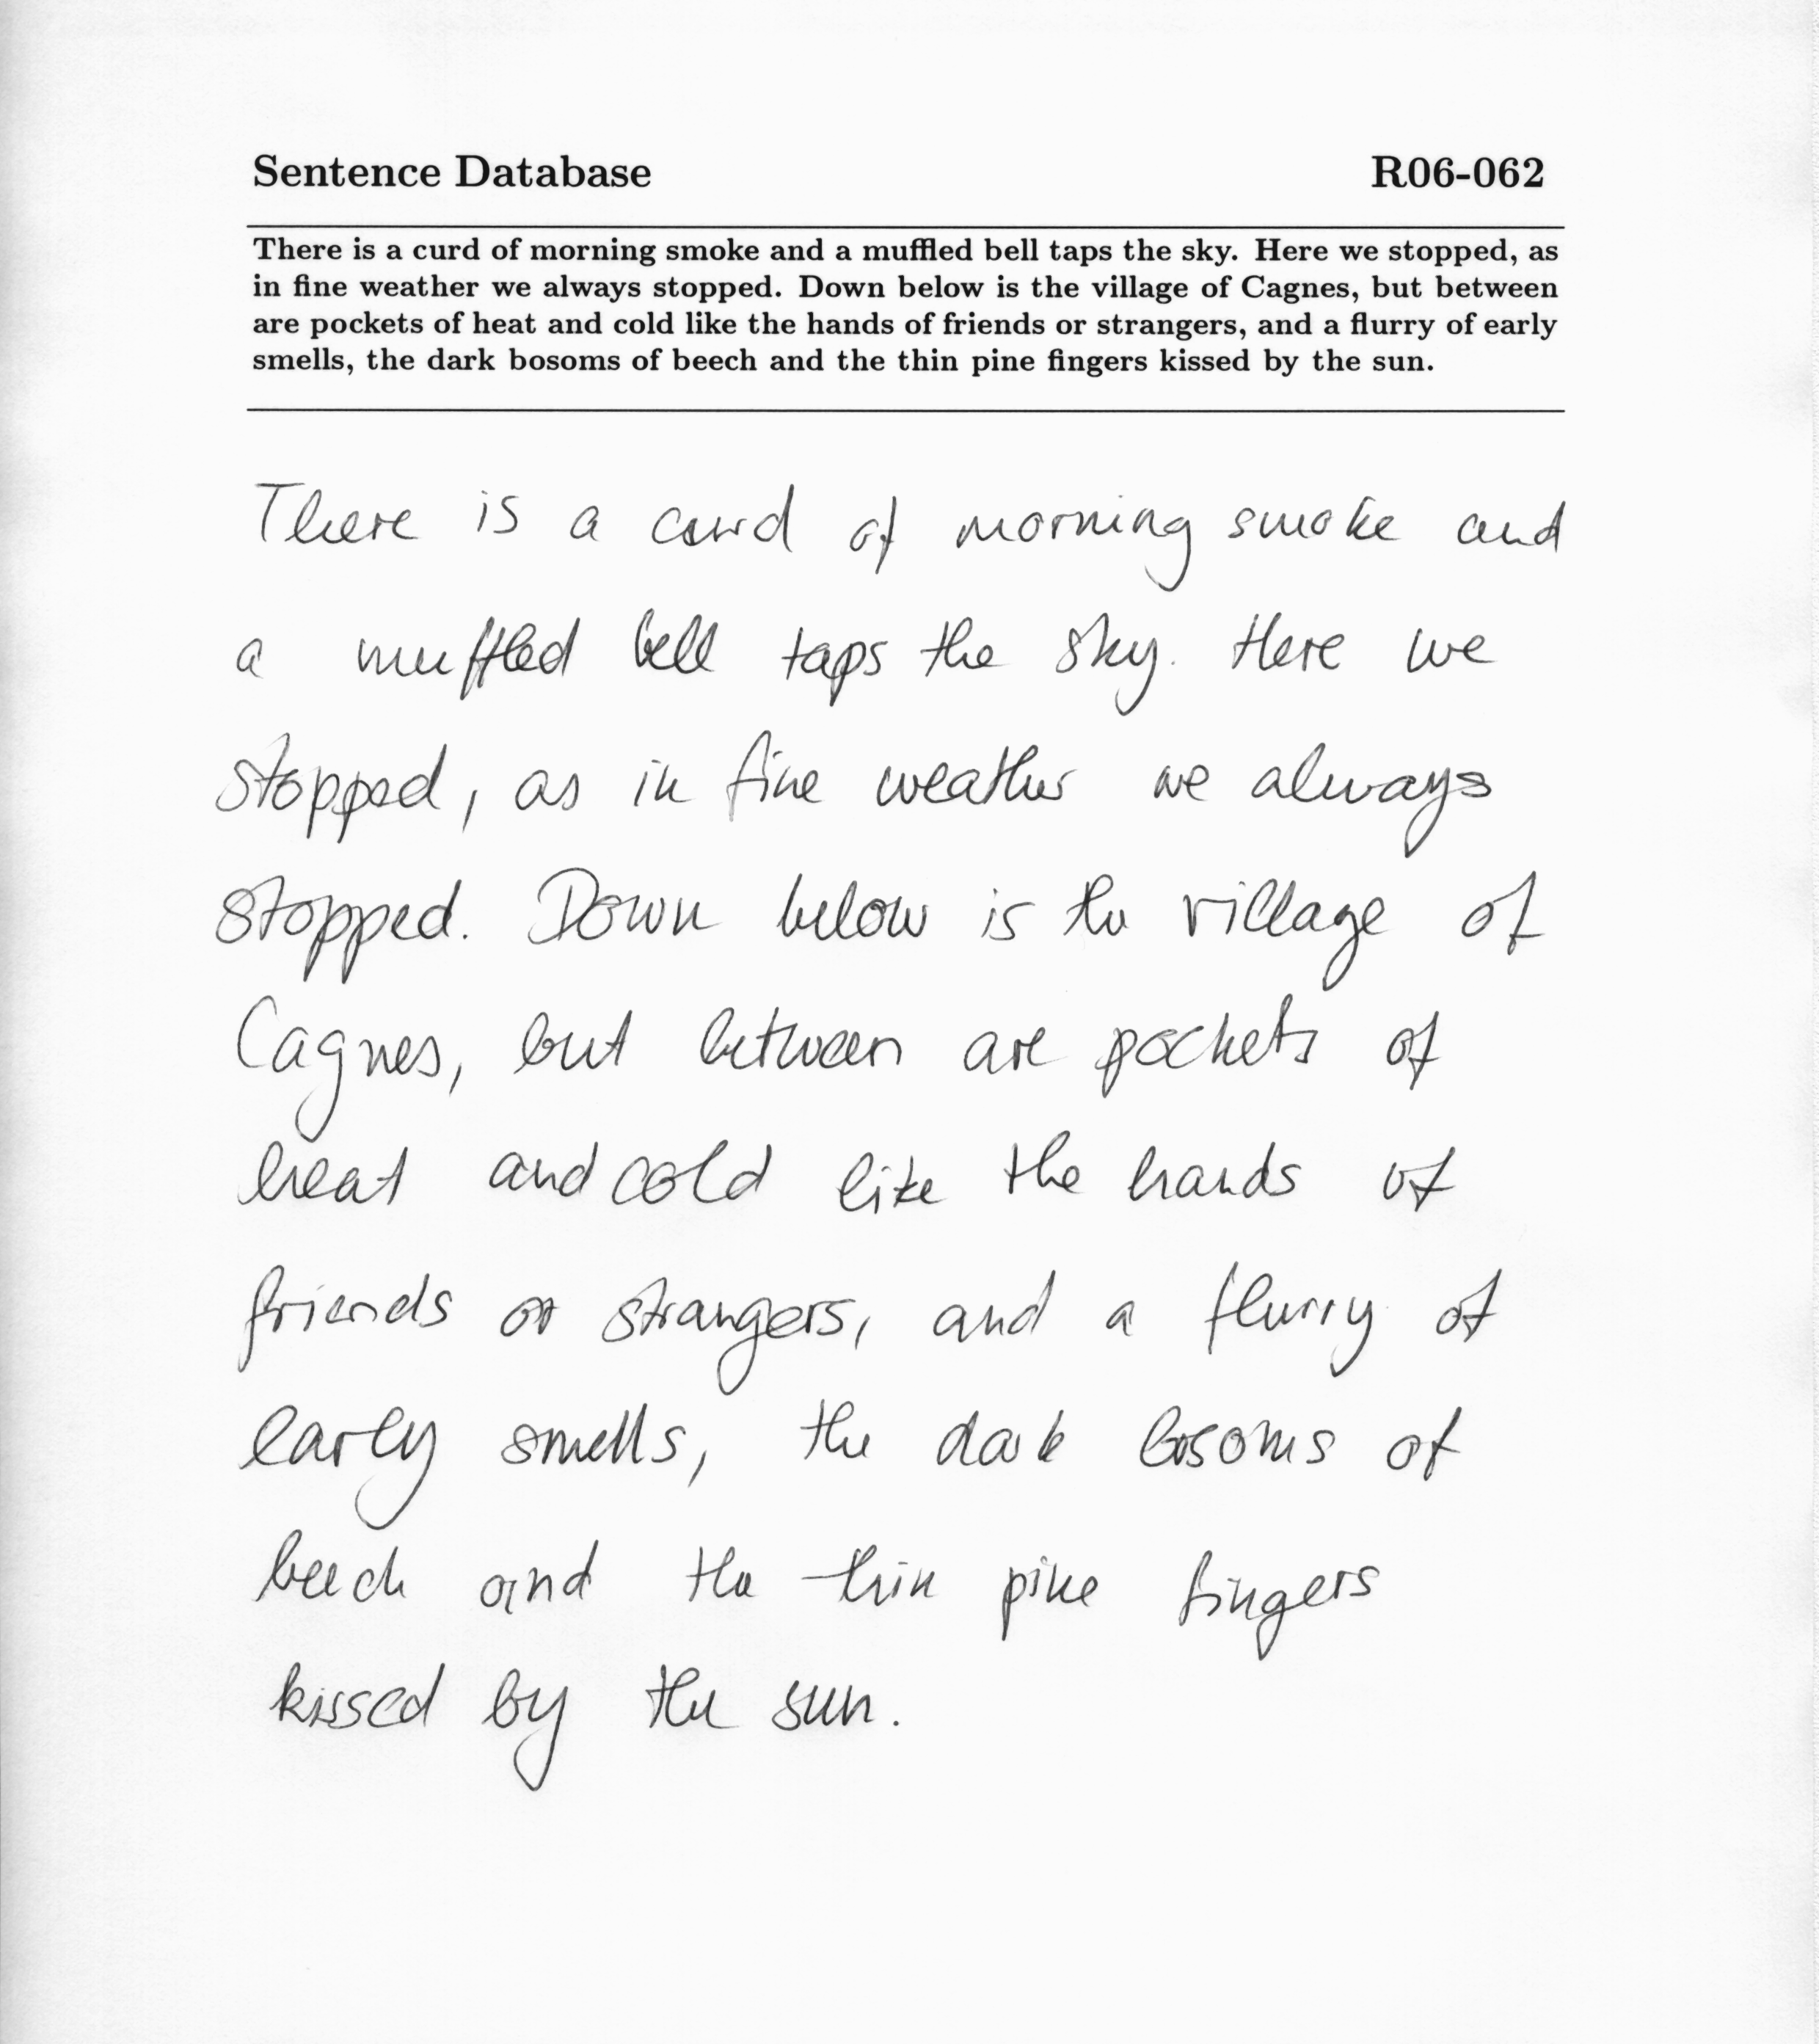 Sentence Database R06-062
There is a curd of morning smoke and a muffled bell taps the sky. Here we stopped, as
in fine weather we always stopped. Down below is the village of Cagnes, but between
are pockets of heat and cold like the hands of friends or strangers, and a flurry of early
smells, the dark bosoms of beech and the thin pine fingers kissed by the sun.
There is a curd of morning smoke and
a muffled bell taps the sky. Here we
stopped, as in fine weather we always
stopped. Down below is the village of
Cagnes, but between are pockets of
heat and cold like the hands of
friends or strangers, and a flurry of
early smells, the dark bosoms of
beech and the thin pine fingers
kissed by the sun.